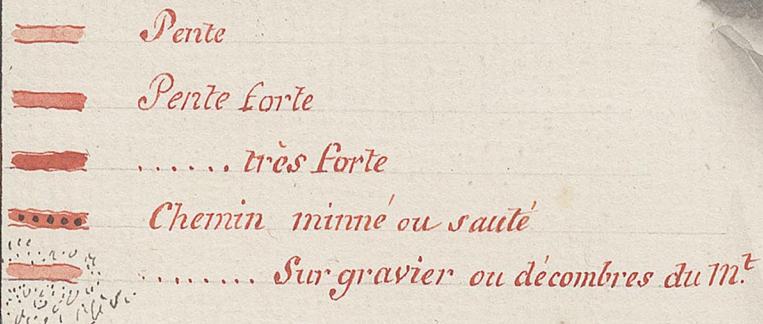 Pente
Pente forte
...... très forte
Chemin minné ou sauté
........ Sur gravier ou décombres du M.t